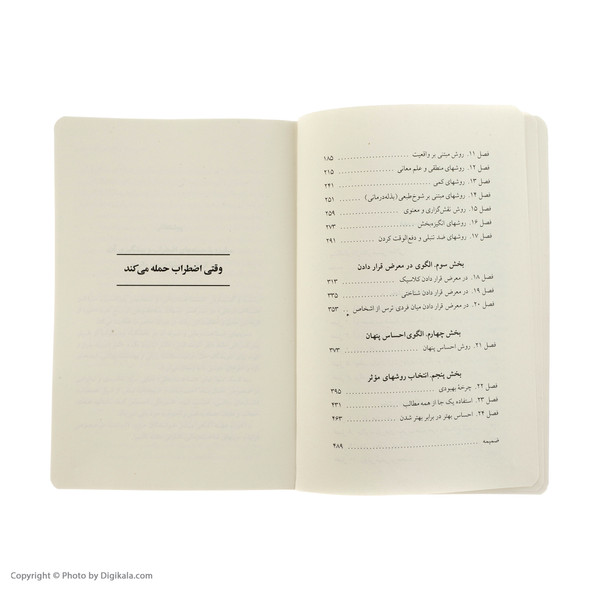 فصل ۱۱. روش مبتنی بر واقعیت ........ ۱۸۵
فصل ۱۲. روشهای منطقی و علم معانی ........ ۲۱۵
فصل ۱۳. روشهای کمی ........ ۲۴۱
فصل ۱۴. روشهای مبتنی بر شوخ‌طبعی (بذله‌درمانی) ........ ۲۵۱
فصل ۱۵. روش نقش‌گزاری و معنوی ........ ۲۵۹
فصل ۱۶. روشهای انگیزه‌بخش ........ ۲۷۳
فصل ۱۷. روشهای ضد تنبلی و دفع‌الوقت کردن ........ ۲۹۱
بخش سوم. الگوی در معرض قرار دادن
فصل ۱۸. در معرض قرار دادن کلاسیک ........ ۳۱۳
فصل ۱۹. در معرض قرار دادن شناختی ........ ۳۳۵
فصل ۲۰. در معرض قرار دادن میان فردی ترس از اشخاص ........ ۳۵۳
بخش چهارم. الگوی احساس پنهان
فصل ۲۱. روش احساس پنهان ........ ۳۷۳
بخش پنجم. انتخاب روشهای مؤثر
فصل ۲۲. چرخهٔ بهبودی ........ ۳۹۵
فصل ۲۳. استفاده یک جا از همه مطالب ........ ۴۳۱
فصل ۲۴. احساس بهتر در برابر بهتر شدن ........ ۴۶۳
ضمیمه ........ ۴۸۹
وقتی اضطراب حمله می‌کند
Copyright © Photo by Digikala.com